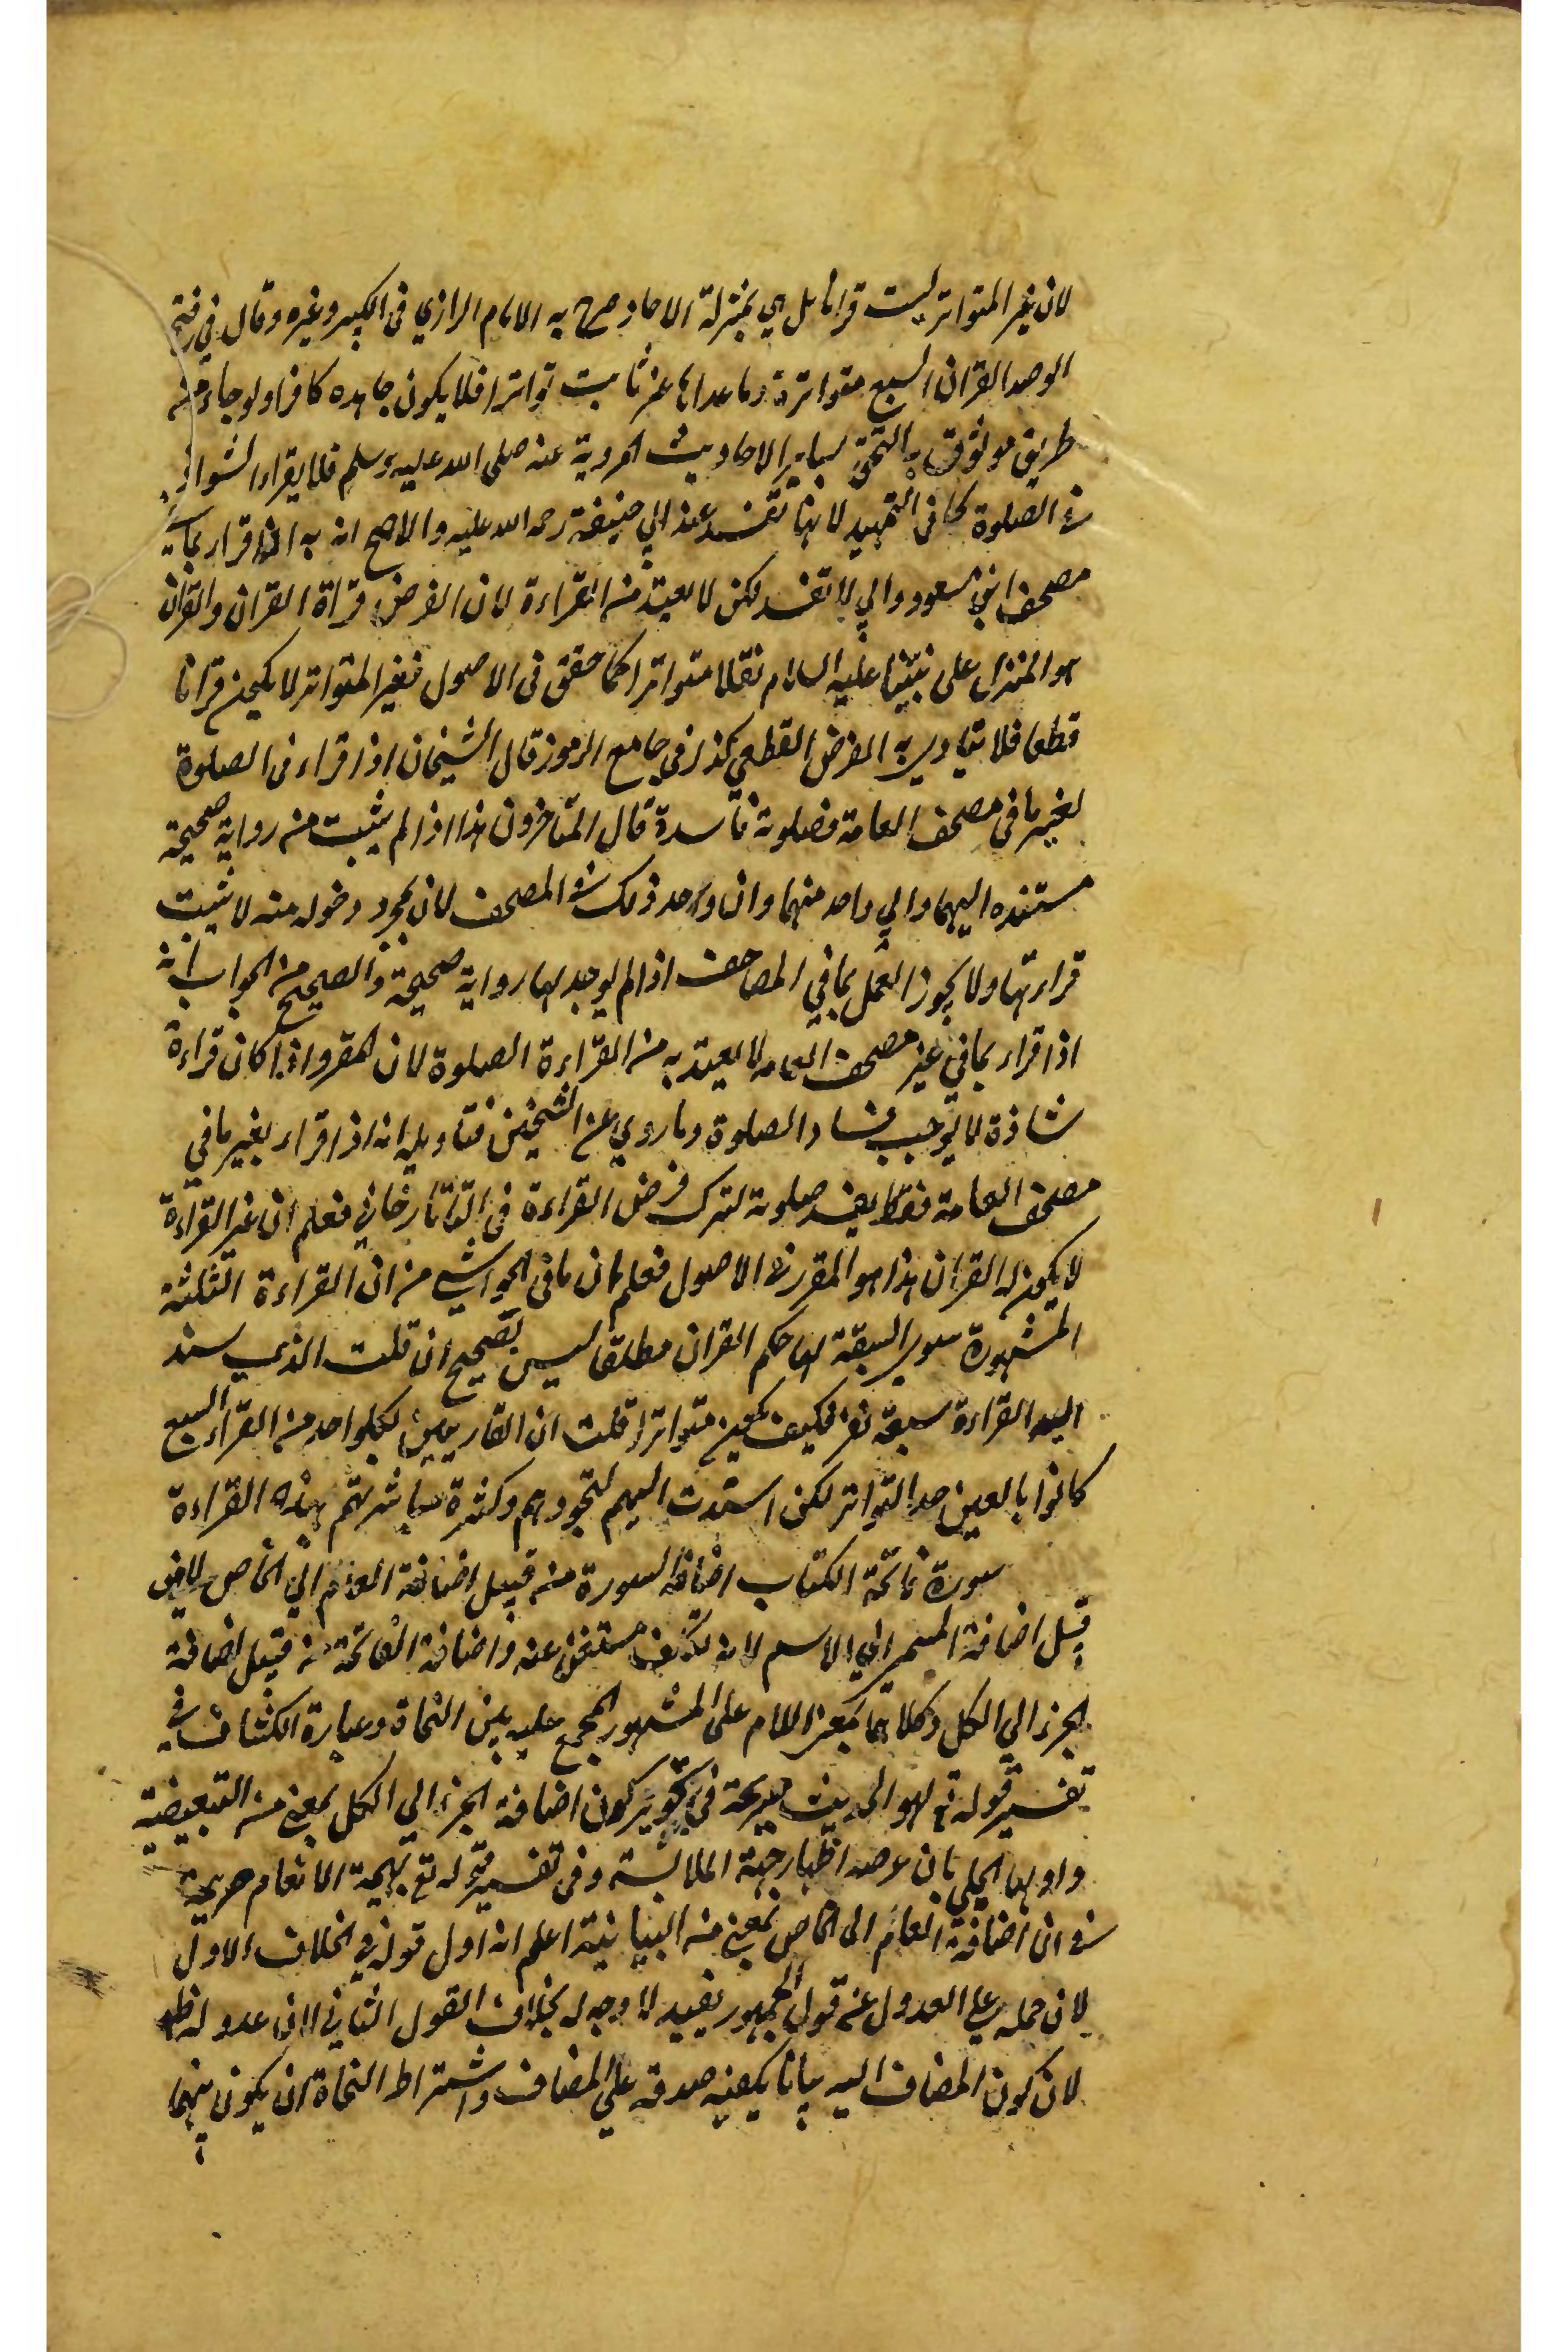 لان غير المتواتر ليست قرانا بل هي بمنزلة الاحاد صرح به الامام الرازي في الكبير وغيره وقال في فتح
الوصد القران السبع متواترة وما عداها غير ثابت تواترا فلا يكون جاحده كافرا ولو جاء من
طريق موثوق به التحق بساير الاحاديث المروية عنه صلى الله عليه وسلم فلا يقراء الشواذ
في الصلوة كما في التمهيد لانها تفسد عند ابي حنيفة رحمه الله عليه والاصح انه به اذا قراء بما في
مصحف ابن مسعود وابي لا تفسد لكن لا يعتد من القراءة لان الفرض قراة القران والقران
هو المنزل على نبينا عليه السلام نقلا متواترا كما حقق في الاصول فغير المتواتر لا يكون قرانا
قطعا فلا يتادي به الفرض القطعي كذا في جامع الرموز قال الشيخان اذا قراء في الصلوة
بغير ما في مصحف العامة فصلوته فاسدة قال المتاخرون هذا اذا لم يثبت منه رواية صحيحة
مستنده اليهما والي واحد منهما وان وجد ذلك في المصحف لان مجرد دخوله منه لا يثبت
قراءتها ولا يجوز العمل بما في المصاحف اذا لم يوجد لها رواية صحيحة والصحيح من الجواب انه
اذا قراء بما في غير مصحف العامه لا يعتد به من القراءة الصلوة لان المقرو اذا كان قراءة
شاذة لا يوجب فساد الصلوة وما روي عن الشيخين فتاويله انه اذا قراء بغير ما في
مصحف العامة فقط يفسد صلوته لترك فرض القراءة في التاتارخاني فعلم ان غير القراءة
لا يكون له القران هذا هو المقرر في الاصول فعلم ان ما في الحواشي من ان القراءة الثلثة
المشهورة سوي السبعة لها حكم القران مطلقا ليس بصحيح ان قلت الذي سند
اليه القراءة سبعة نفر فكيف يكون متواترا قلت ان القاريين لكل واحد من القراء السبع
كانوا بالغين حد التواتر لكن اسندت اليهم لتجودهم وكثرة مباشرتهم بهذه القراءة
سورة فاتحة الكتاب اضافة السورة من قبيل اضافة العام الي الخاص لا من
قبل اضافة المسمى الي الاسم لانه تكلف مستغنى عنه واضافة الفاتحة من قبيل اضافة
الجزء الي الكل وكلاهما بمعنى اللام على المشهور المجمع عليه بين النحاة وعبارة الكشاف في
تفسير قوله تع لهو الحديث صريحة في تجويز كون اضافة الجزء الي الكل بمعنى من التبعيضية
واولها الحلبي بان غرضه اظهار جهة الملابسة وفي تفسير قوله تع بهيمة الانعام صريحة
في ان اضافة العام الى الخاص بمعنى من البيانية اعلم انه اول قوله في الخلاف الاول
لان حمله علي العدول عن قول الجمهور بعيد لا وجه له بخلاف القول الثاني لان عدوله ظاهر
لان كون المضاف اليه بيانا يكفيه صدقه علي المضاف واشتراط النحاة ان يكون بينهما